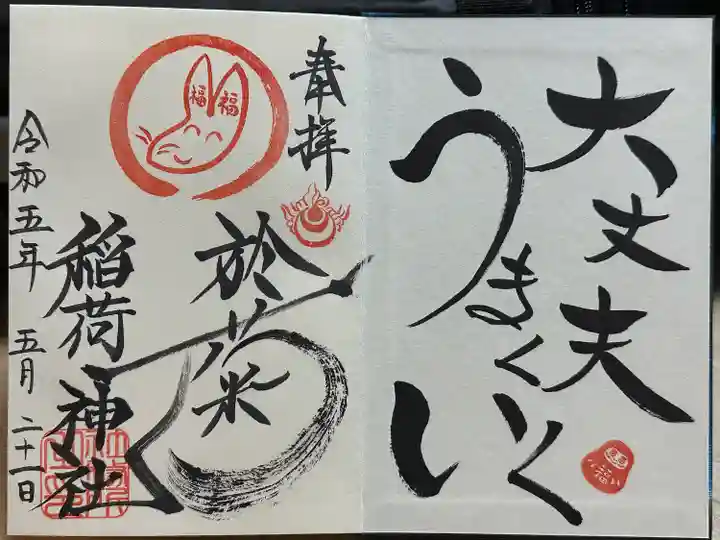 大丈夫
うまくいく
い
福
奉拝
福福
於菊
稲荷神社
令和五年 五月二十一日